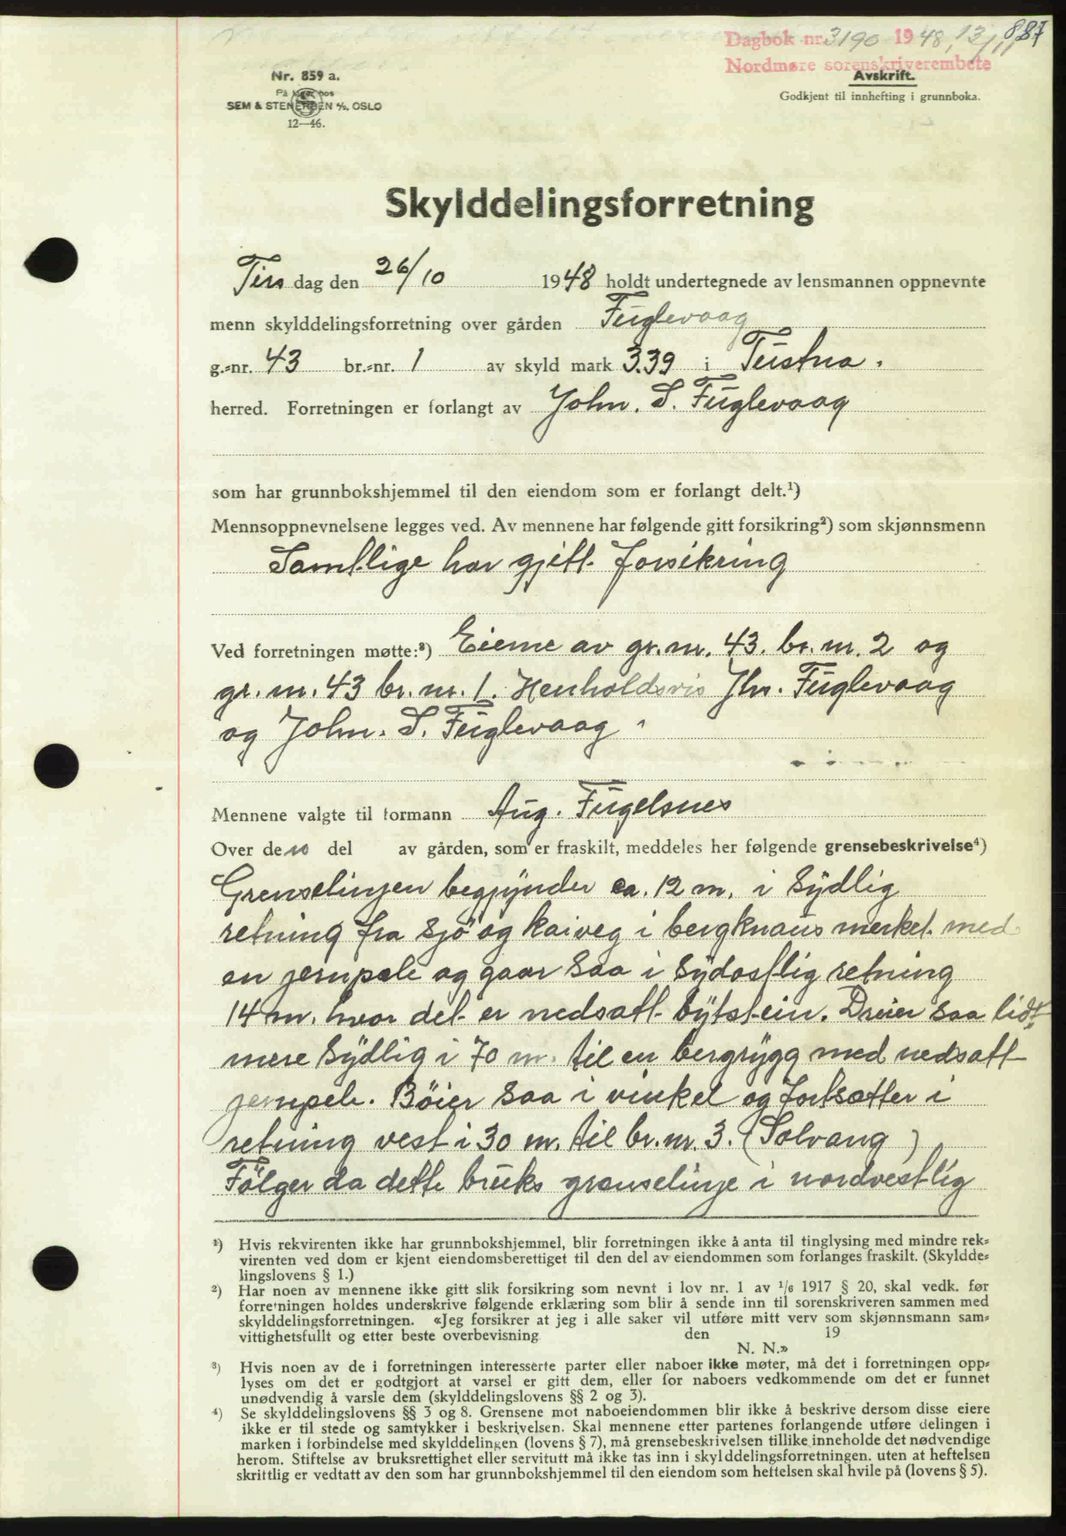 887
Dagbok nr. 3190 1948, 13/11
Nordmøre sorenskriverembete
Nr. 859 a.
På lager hos
SEM & STENERSEN A/S, OSLO
12—46.
Avskrift.
Godkjent til innhefting i grunnboka.
Skylddelingsforretning
Tirsdag den 26/10 1948 holdt undertegnede av lensmannen oppnevnte
menn skylddelingsforretning over gården Fuglevaag
g.-nr. 43 br.-nr. 1 av skyld mark 3.39 i Tustna.
herred. Forretningen er forlangt av John. S. Fuglevaag
som har grunnbokshjemmel til den eiendom som er forlangt delt.¹)
Mennsoppnevnelsene legges ved. Av mennene har følgende gitt forsikring²) som skjønnsmenn
Samtlige har gjitt forsikring
Ved forretningen møtte:³) Eierne av gr.nr. 43. br.nr. 2 og
gr.nr. 43 br.nr. 1. Henholdsvis Jhs. Fuglevaag
og John. S. Fuglevaag.
Mennene valgte til formann Aug. Fugelsnes
Over den del av gården, som er fraskilt, meddeles her følgende grensebeskrivelse⁴)
Grenselinjen begynder ca. 12 m. i sydlig
retning fra sjö og kaiveg i bergknaus merket med
en jernpele og gaar saa i sydostlig retning
14 m. hvor det er nedsatt bytstein. Dreier saa lidt
mere sydlig i 70 m. til en bergrygg med nedsatt
jernpele. Böier saa i vinkel og fortsætter i
retning vest i 30 m. til br.nr. 3. (Solvang)
Følger da dette bruks grenselinje i nordvestlig
¹) Hvis rekvirenten ikke har grunnbokshjemmel, blir forretningen ikke å anta til tinglysing med mindre rek-
virenten ved dom er kjent eiendomsberettiget til den del av eiendommen som forlanges fraskilt. (Skyldde-
lingslovens § 1.)
²) Har noen av mennene ikke gitt slik forsikring som nevnt i lov nr. 1 av ¹/₆ 1917 § 20, skal vedk. før
forretningen holdes underskrive følgende erklæring som blir å sende inn til sorenskriveren sammen med
skylddelingsforretningen. «Jeg forsikrer at jeg i alle saker vil utføre mitt verv som skjønnsmann sam-
vittighetsfullt og etter beste overbevisning den 19
N. N.»
³) Hvis noen av de i forretningen interesserte parter eller naboer ikke møter, må det i forretningen opp-
lyses om det er godtgjort at varsel er gitt dem, eller for naboers vedkommende om det er funnet
unødvendig å varsle dem (skylddelingslovens §§ 2 og 3).
⁴) Se skylddelingslovens §§ 3 og 8. Grensene mot naboeiendommen blir ikke å beskrive dersom disse eiere
ikke er til stede og samtykker i beskrivelsen. Skal mennene etter partenes forlangende utføre delingen i
marken i forbindelse med skylddelingen (lovens § 7), må grensebeskrivelsen tillike inneholde det nødvendige
herom. Stiftelse av bruksrettighet eller servitutt må ikke tas inn i skylddelingsforretningen. uten at heftelsen
skriftlig er vedtatt av den som har grunnbokshjemmel til den eiendom som heftelsen skal hvile på (lovens § 5).